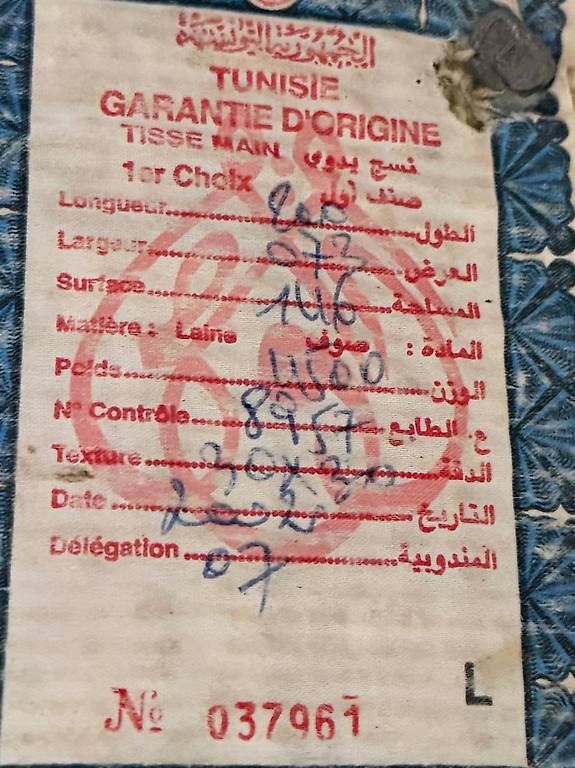 الجمهورية التونسية
TUNISIE
GARANTIE D'ORIGINE
TISSE MAIN نسج يدوي
1er Choix صنف أول
Longueur 200 الطول
Largeur 073 العرض
Surface 146 المساحة
Matière : Laine صوف المادة :
Poids 4500 الوزن
N° Contrôle 8957 ع. الطابع
Texture 30x30 الدقة
Date 2002 التاريخ
Délégation 07 المندوبية
L
№ 037961